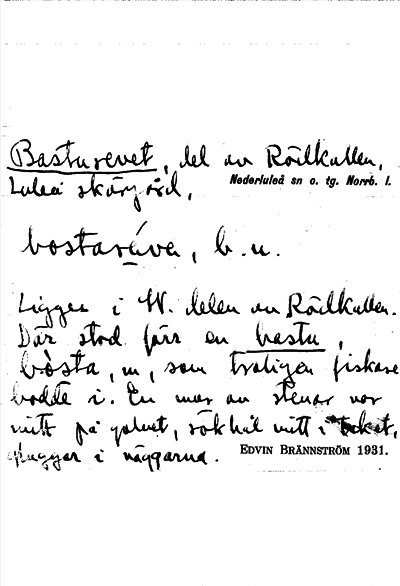 Basturevet, del av Rödkallen,
Luleå skärgård,
Nederluleå sn o. tg. Norrb. l.
bostaráva, b. u.
Ligger i W. delen av Rödkallen.
Där stod förr en bastu,
bòsta, m, som troligen fiskare
bodde i. En mur av stenar var
mitt på golvet, rökhål mitt i taket,
gluggar i väggarna.
EDVIN BRÄNNSTRÖM 1931.